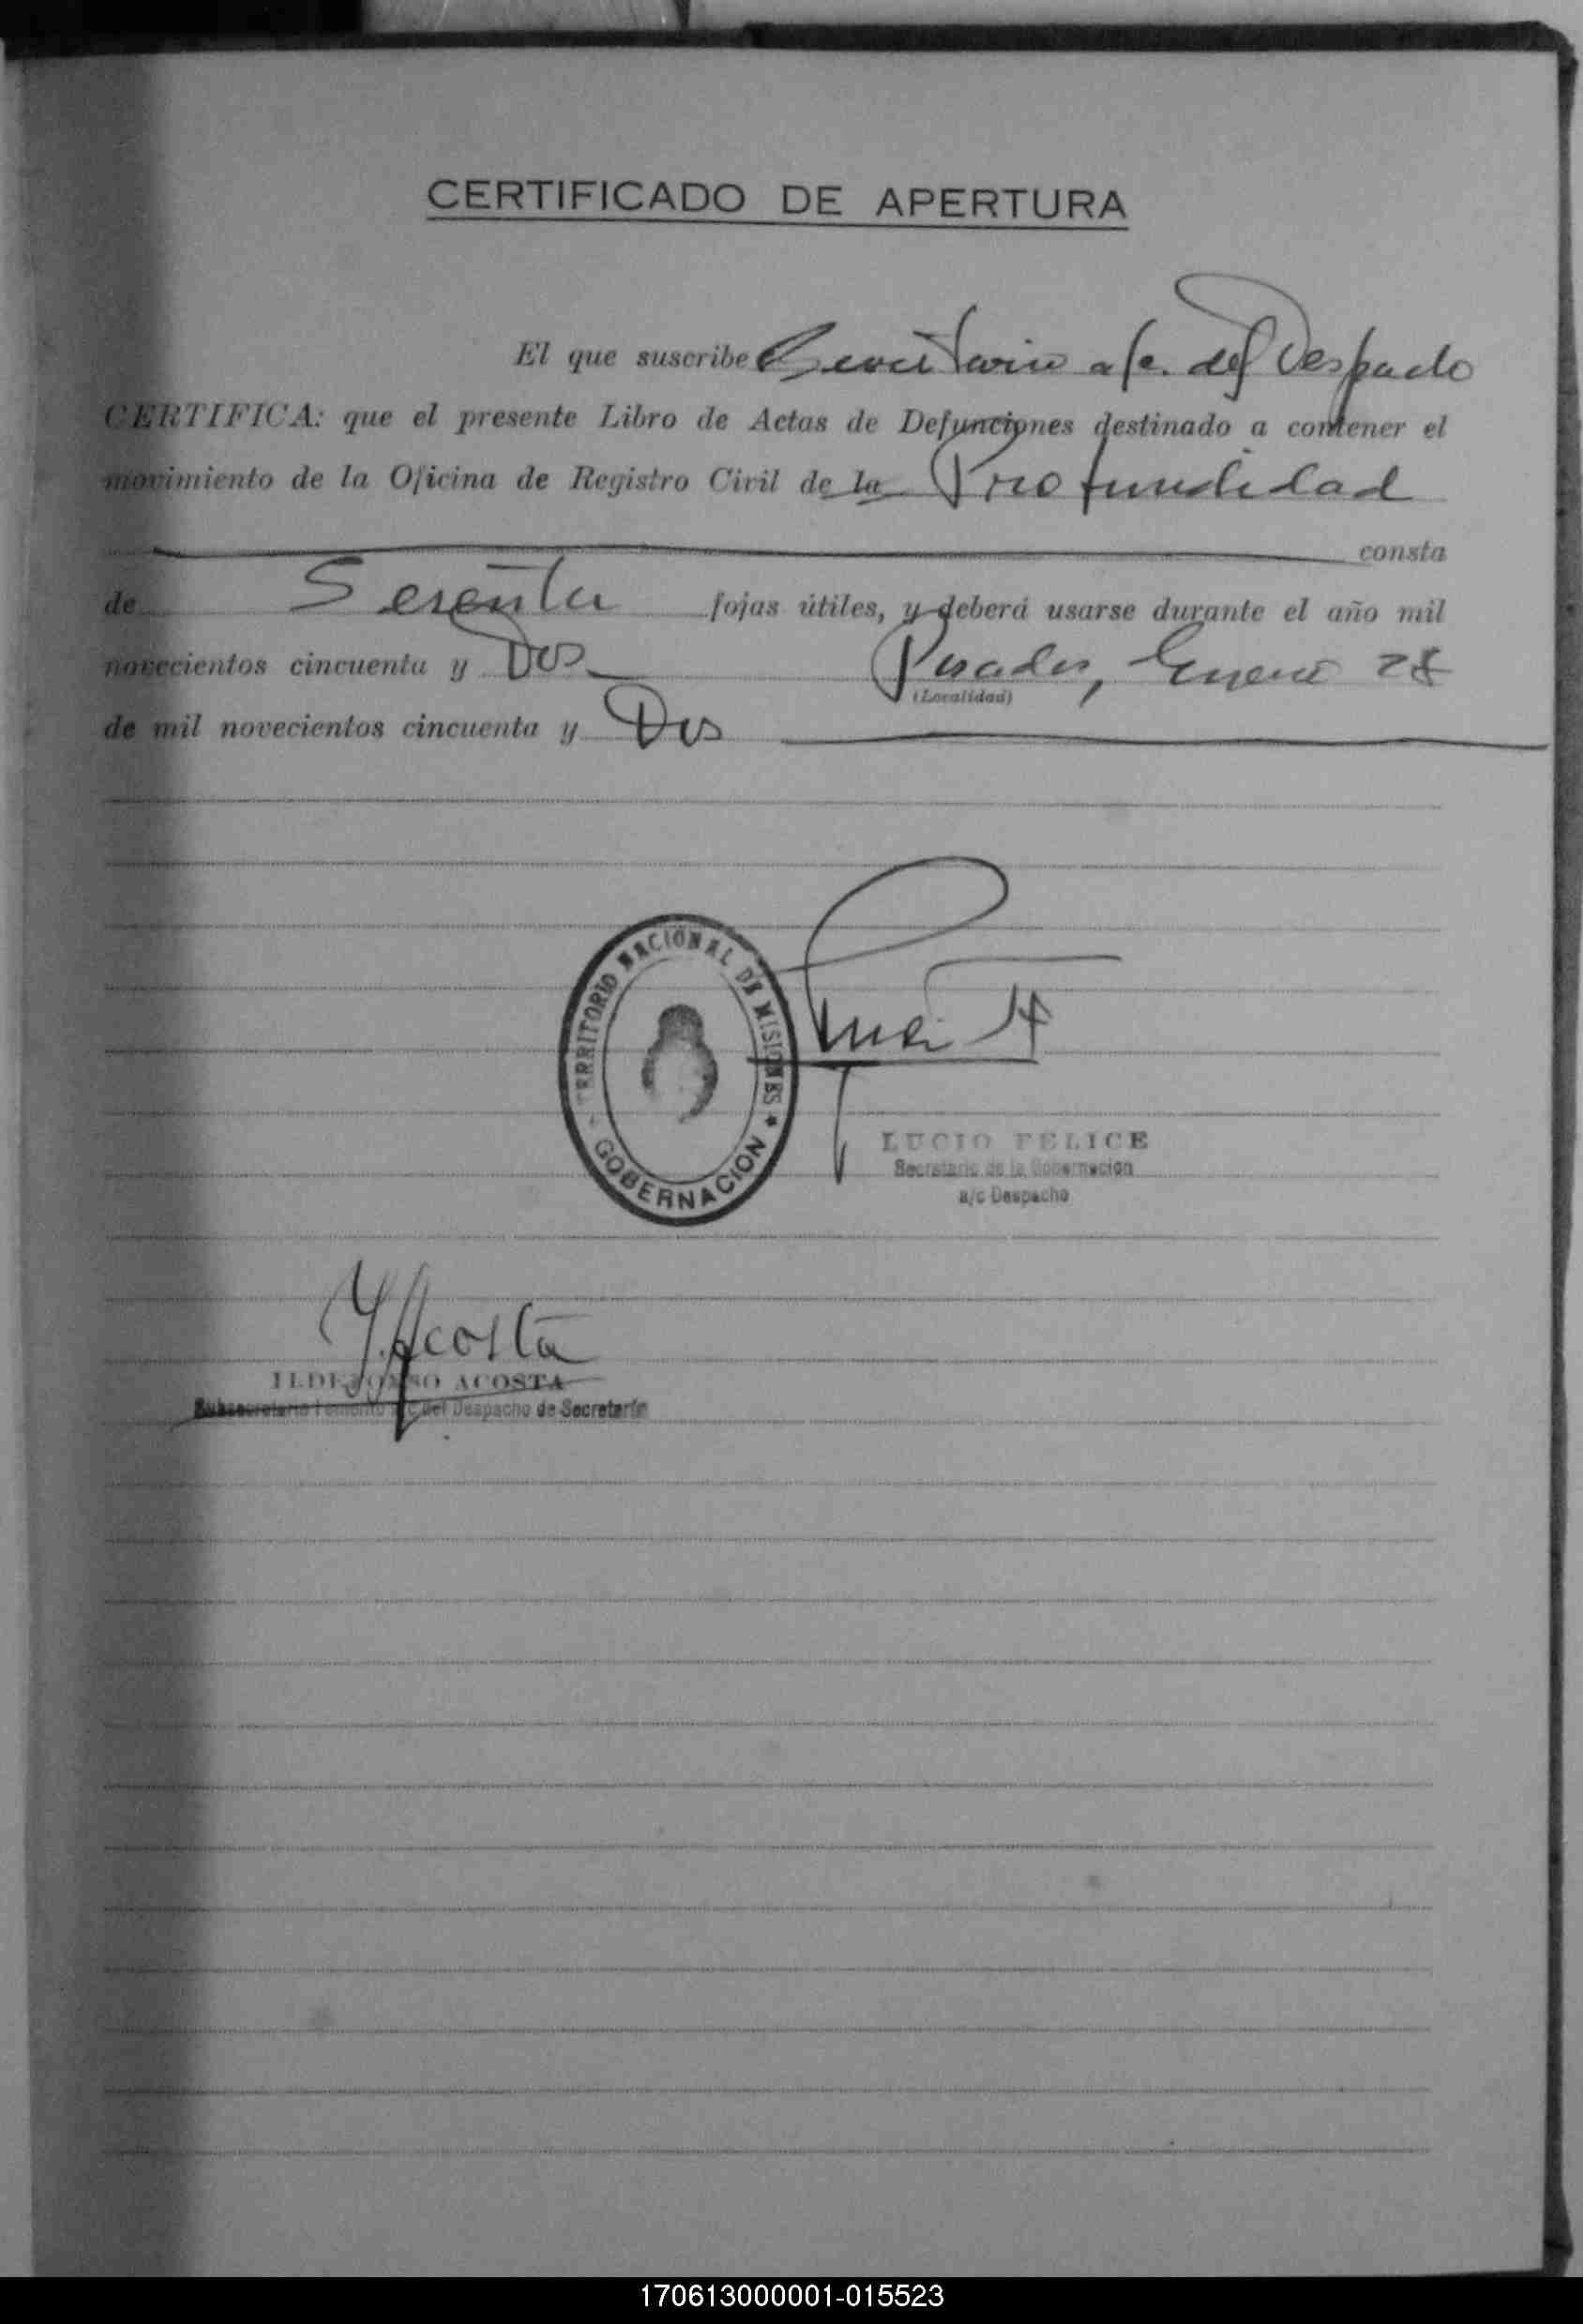 CERTIFICADO DE APERTURA
El que suscribe Secretario a/c. del Despacho
CERTIFICA: que el presente Libro de Actas de Defunciones destinado a contener el
movimiento de la Oficina de Registro Civil de la Profundidad
consta
de Sesenta fojas útiles, y deberá usarse durante el año mil
novecientos cincuenta y Dos Posadas, Enero 28
(Localidad)
de mil novecientos cincuenta y Dos
TERRITORIO NACIONAL DE MISIONES
GOBERNACION
LUCIO FELICE
Secretario de la Gobernación
a/c Despacho
Y. Acosta
ILDEFONSO ACOSTA
Subsecretario Fomento a/c del Despacho de Secretaría
170613000001-015523